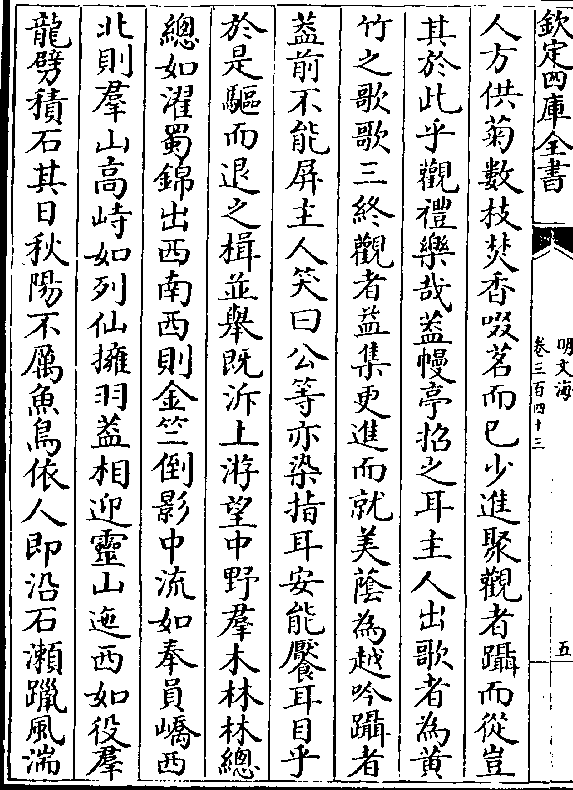 欽定四庫全書
明文海
卷三百四十三
五
人方供菊數枝焚香啜茗而已少進聚觀者躡而從豈
其於此乎觀禮樂哉蓋幔亭招之耳主人出歌者為黃
竹之歌歌三終觀者葢集更進而就美蔭為越吟躡者
葢前不能屏主人笑曰公等亦染指耳安能饜耳目乎
於是驅而退之楫並舉既泝上游望中野羣木林林總
總如濯蜀錦出西南西則金竺倒影中流如奉員嶠西
北則羣山高峙如列仙擁羽葢相迎靈山迤西如役羣
龍劈積石其日秋陽不厲魚鳥依人即沿石瀨躐風湍